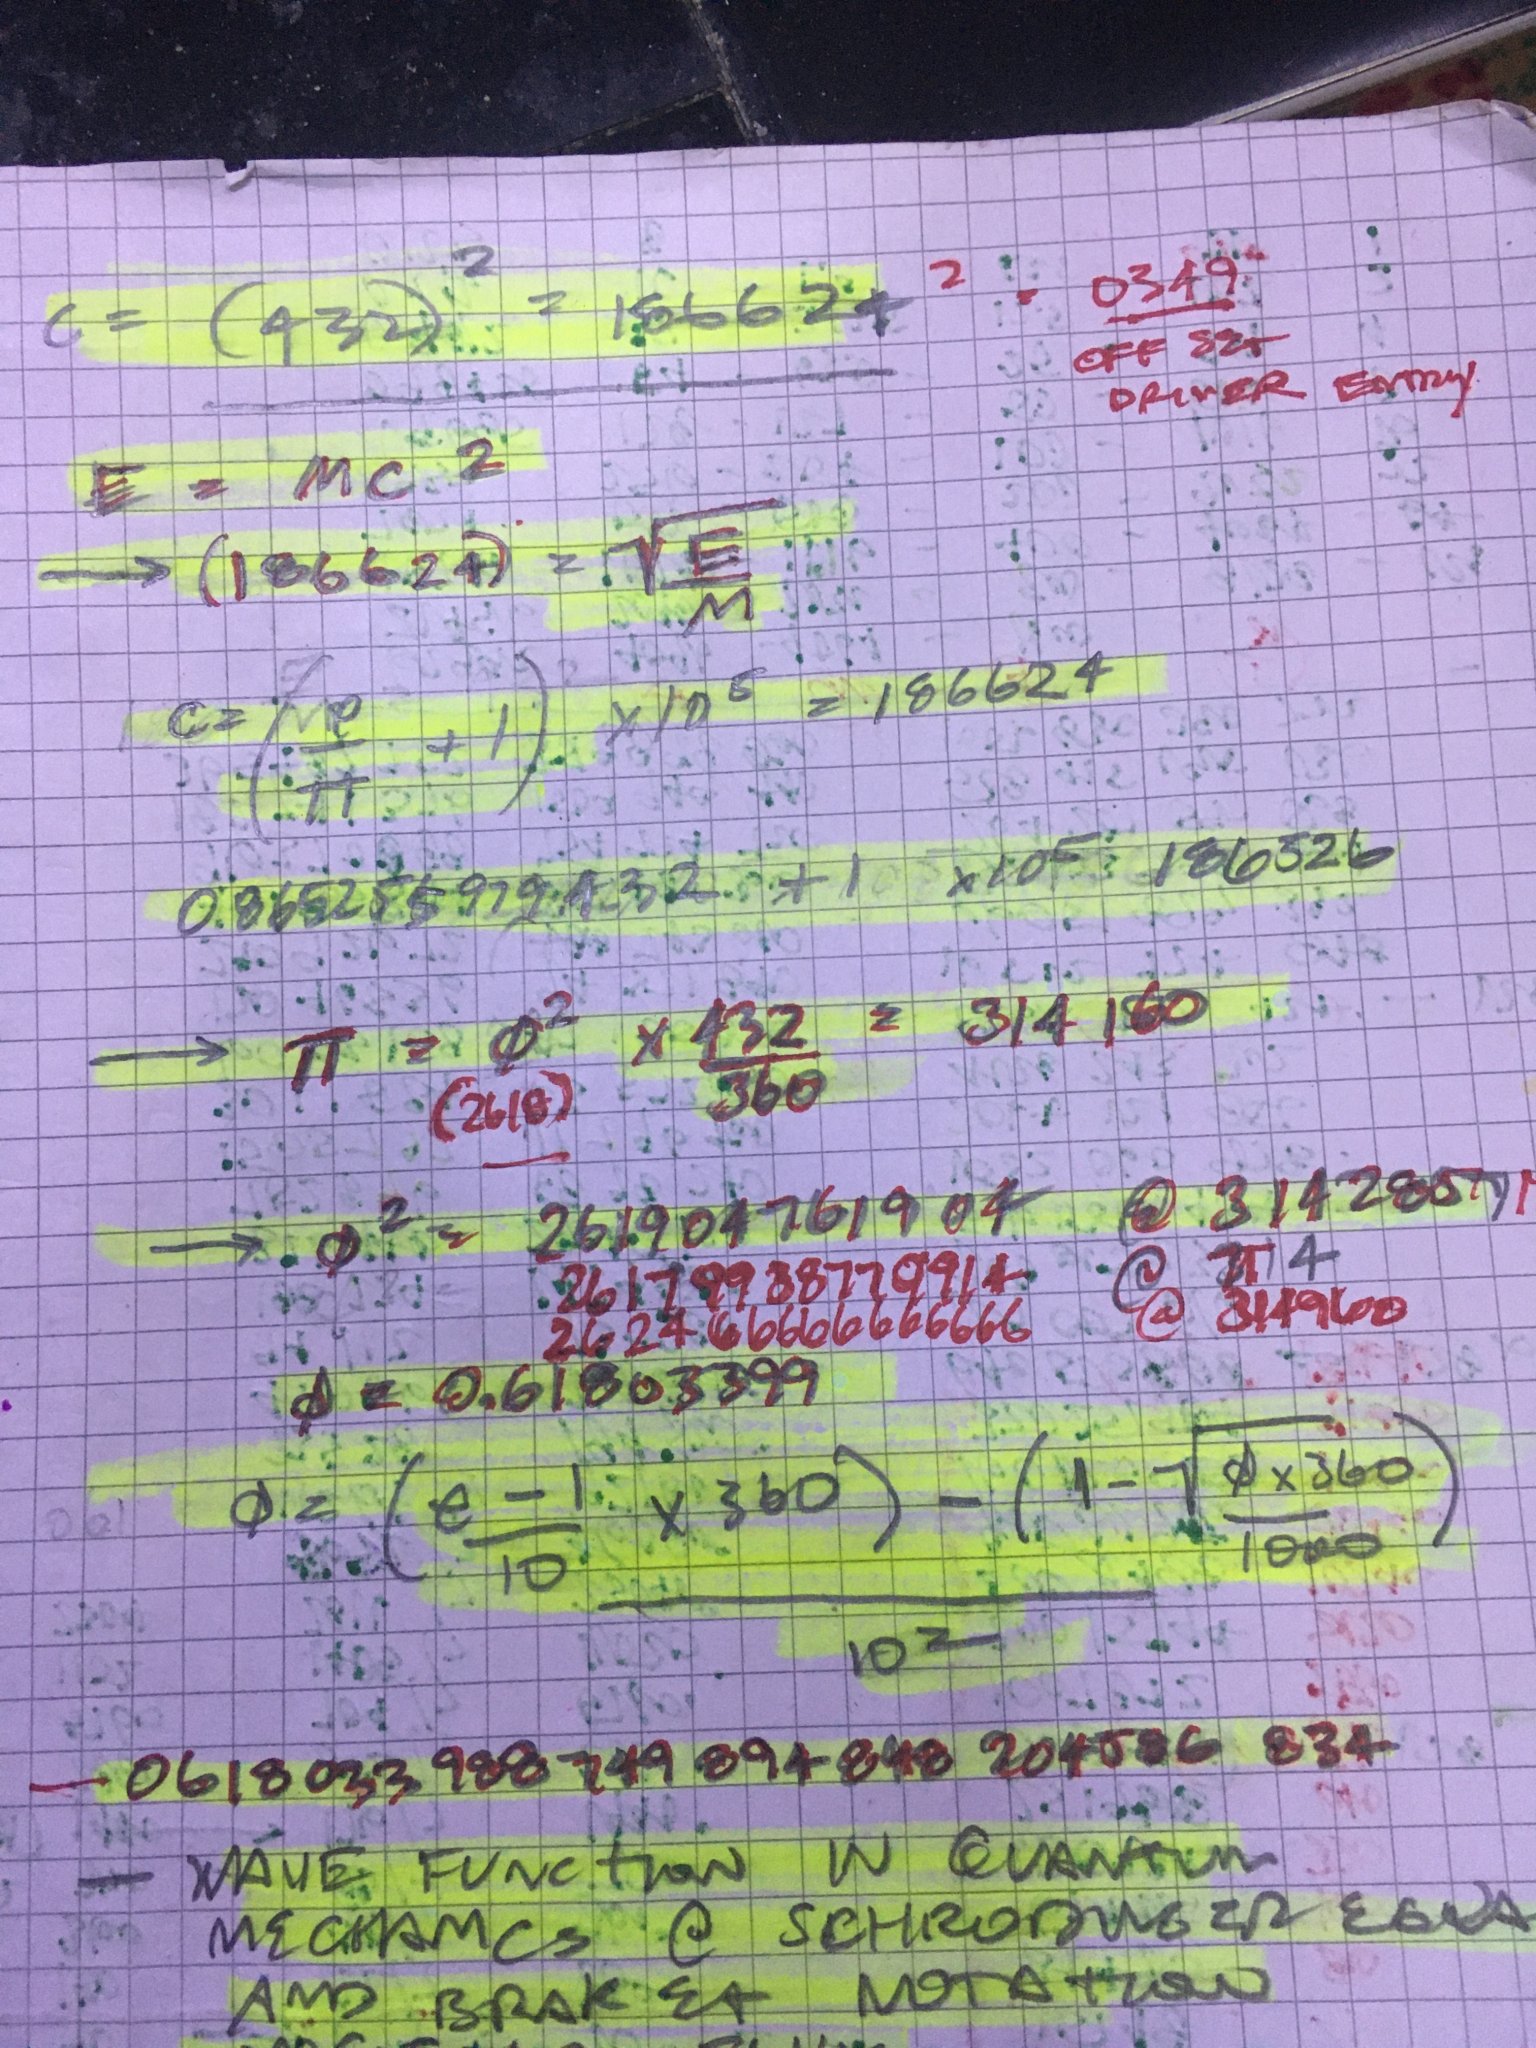 C = (432)² = 186624² - 0349
OFF SET
DRIVER ENTRY
E = MC²
→ (186624) = √E/M
C = (e/π + 1) × 10⁵ = 186624
0.865255979432 + 1 × 10⁵ 186526
→ π = φ² × 432/360 = 314160
(2618)
→ φ² = 261904761904 @ 3142857
2617993877 @ π
262466666666666 @ 314960
φ = 0.61803399
φ = ((e - 1/10 × 360) - (1 - √φ×360/1000))/10²
— 0618033988749894848204586834
— WAVE FUNCTION IN QUANTUM
MECHANICS @ SCHRODINGER EQUA
AND BRAKET NOTATION